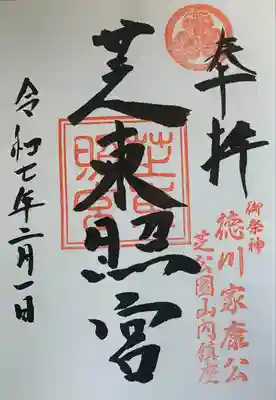 奉拝
御祭神
徳川家康公
芝公園山内鎮座
芝東照宮
芝東照宮
令和七年二月一日